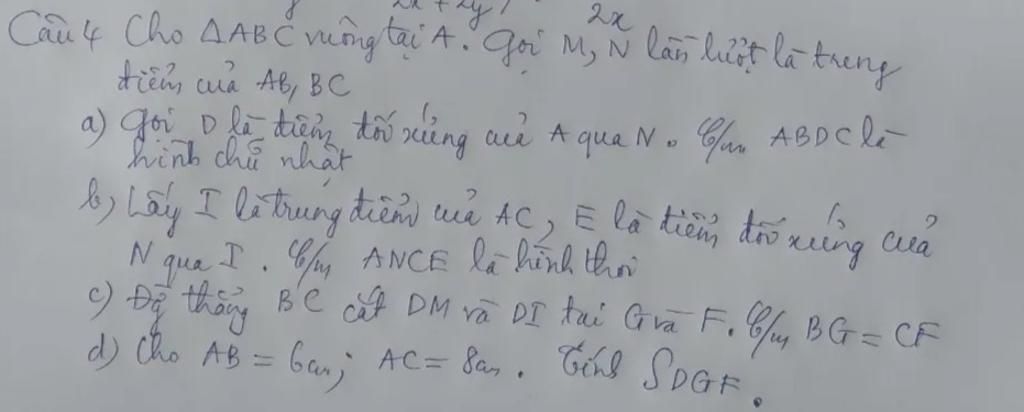 2x + 2y 2x
Câu 4 Cho ΔABC vuông tại A. Gọi M, N lần lượt là trung
điểm của AB, BC
a) Gọi D là điểm đối xứng của A qua N. C/m ABDC là
hình chữ nhật
b) Lấy I là trung điểm của AC, E là điểm đối xứng của
N qua I. C/m ANCE là hình thoi
c) Đg thẳng BC cắt DM và DI tại G và F. C/m BG = CF
d) Cho AB = 6cm; AC = 8cm. Tính SDGF.